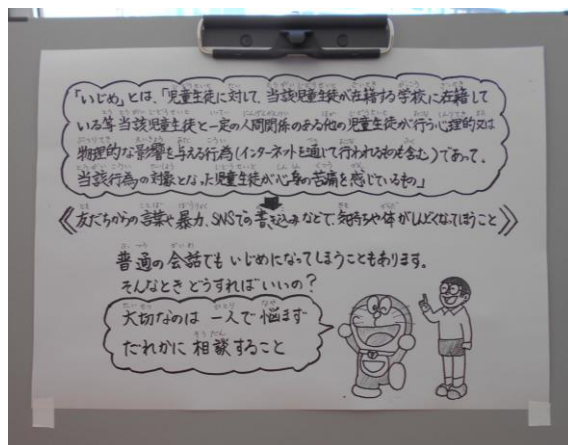 「いじめ」とは、「児童生徒に対して、当該児童生徒が在籍する学校に在籍して
いる等当該児童生徒と一定の人間関係のある他の児童生徒が行う心理的又は
物理的な影響を与える行為(インターネットを通じて行われるものも含む)であって、
当該行為の対象となった児童生徒が心身の苦痛を感じているもの」
《友だちからの言葉や暴力、SNSでの書き込みなどで、気持ちや体がしんどくなってしまうこと》
普通の会話でもいじめになってしまうこともあります。
そんなとき どうすればいいの?
大切なのは 一人で悩まず
だれかに 相談すること